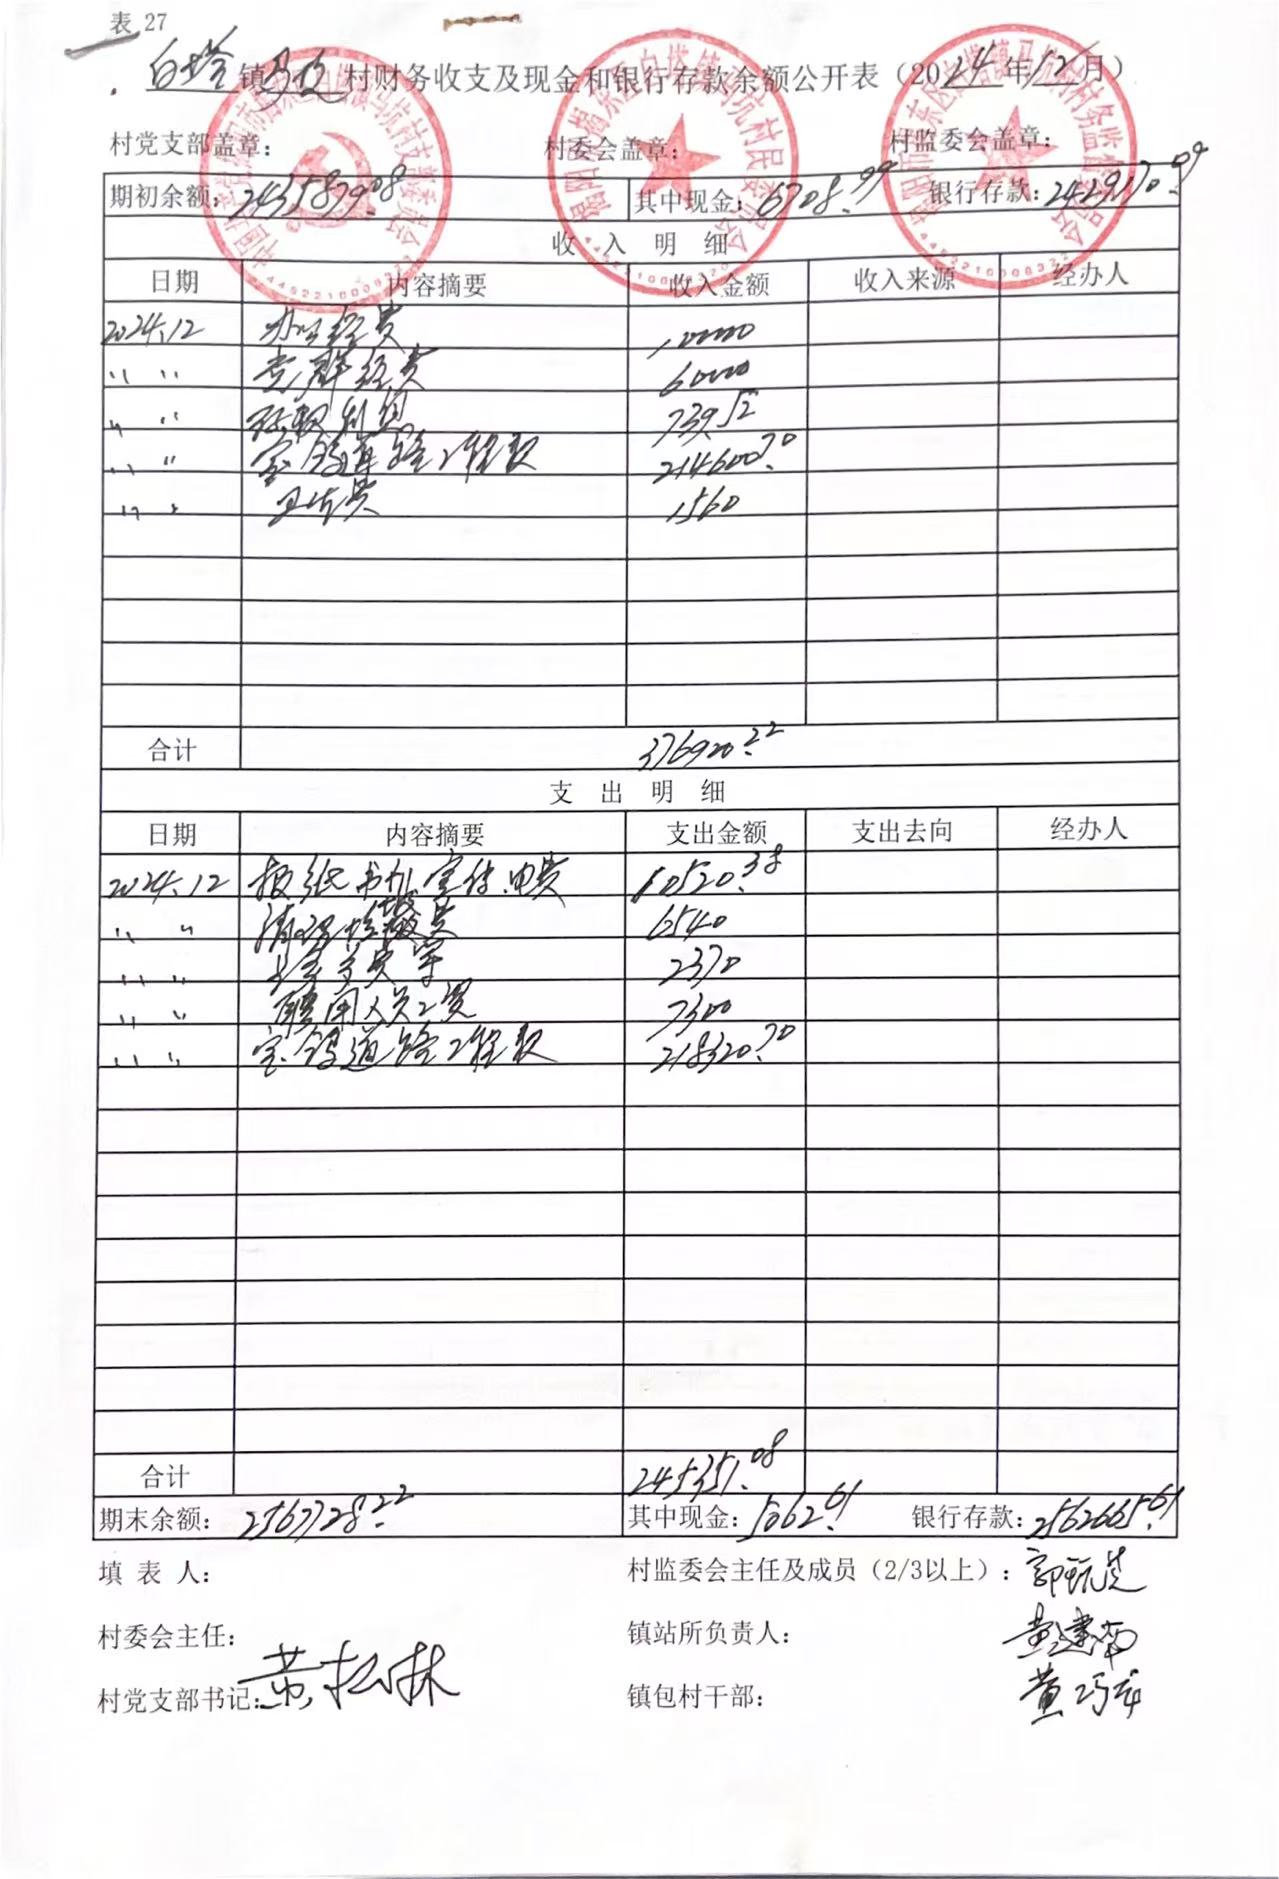 表 27
白塔镇马坑村财务收支及现金和银行存款余额公开表（2024年12月）
村党支部盖章： 村委会盖章： 村监委会盖章：
期初余额：2435879.08 其中现金：6708.99 银行存款：2429170.09
收 入 明 细
日期 内容摘要 收入金额 收入来源 经办人
2024.12 办公经费 10000
〃 〃 党群经费 60000
〃 〃 利息 739.52
〃 〃 道路工程款 214600.70
〃 〃 卫生费 1560
合计 376920.22
支 出 明 细
日期 内容摘要 支出金额 支出去向 经办人
2024.12 报纸书刊、宣传、电费 10520.38
〃 〃 清理垃圾费 6540
〃 〃 2370
〃 〃 聘用人员工资 7300
〃 〃 道路工程款 218320.70
合计 245351.08
期末余额：2567728.22 其中现金：5062.61 银行存款：2562665.61
填 表 人： 村监委会主任及成员（2/3以上）：
村委会主任： 镇站所负责人：
村党支部书记：黄松林 镇包村干部：